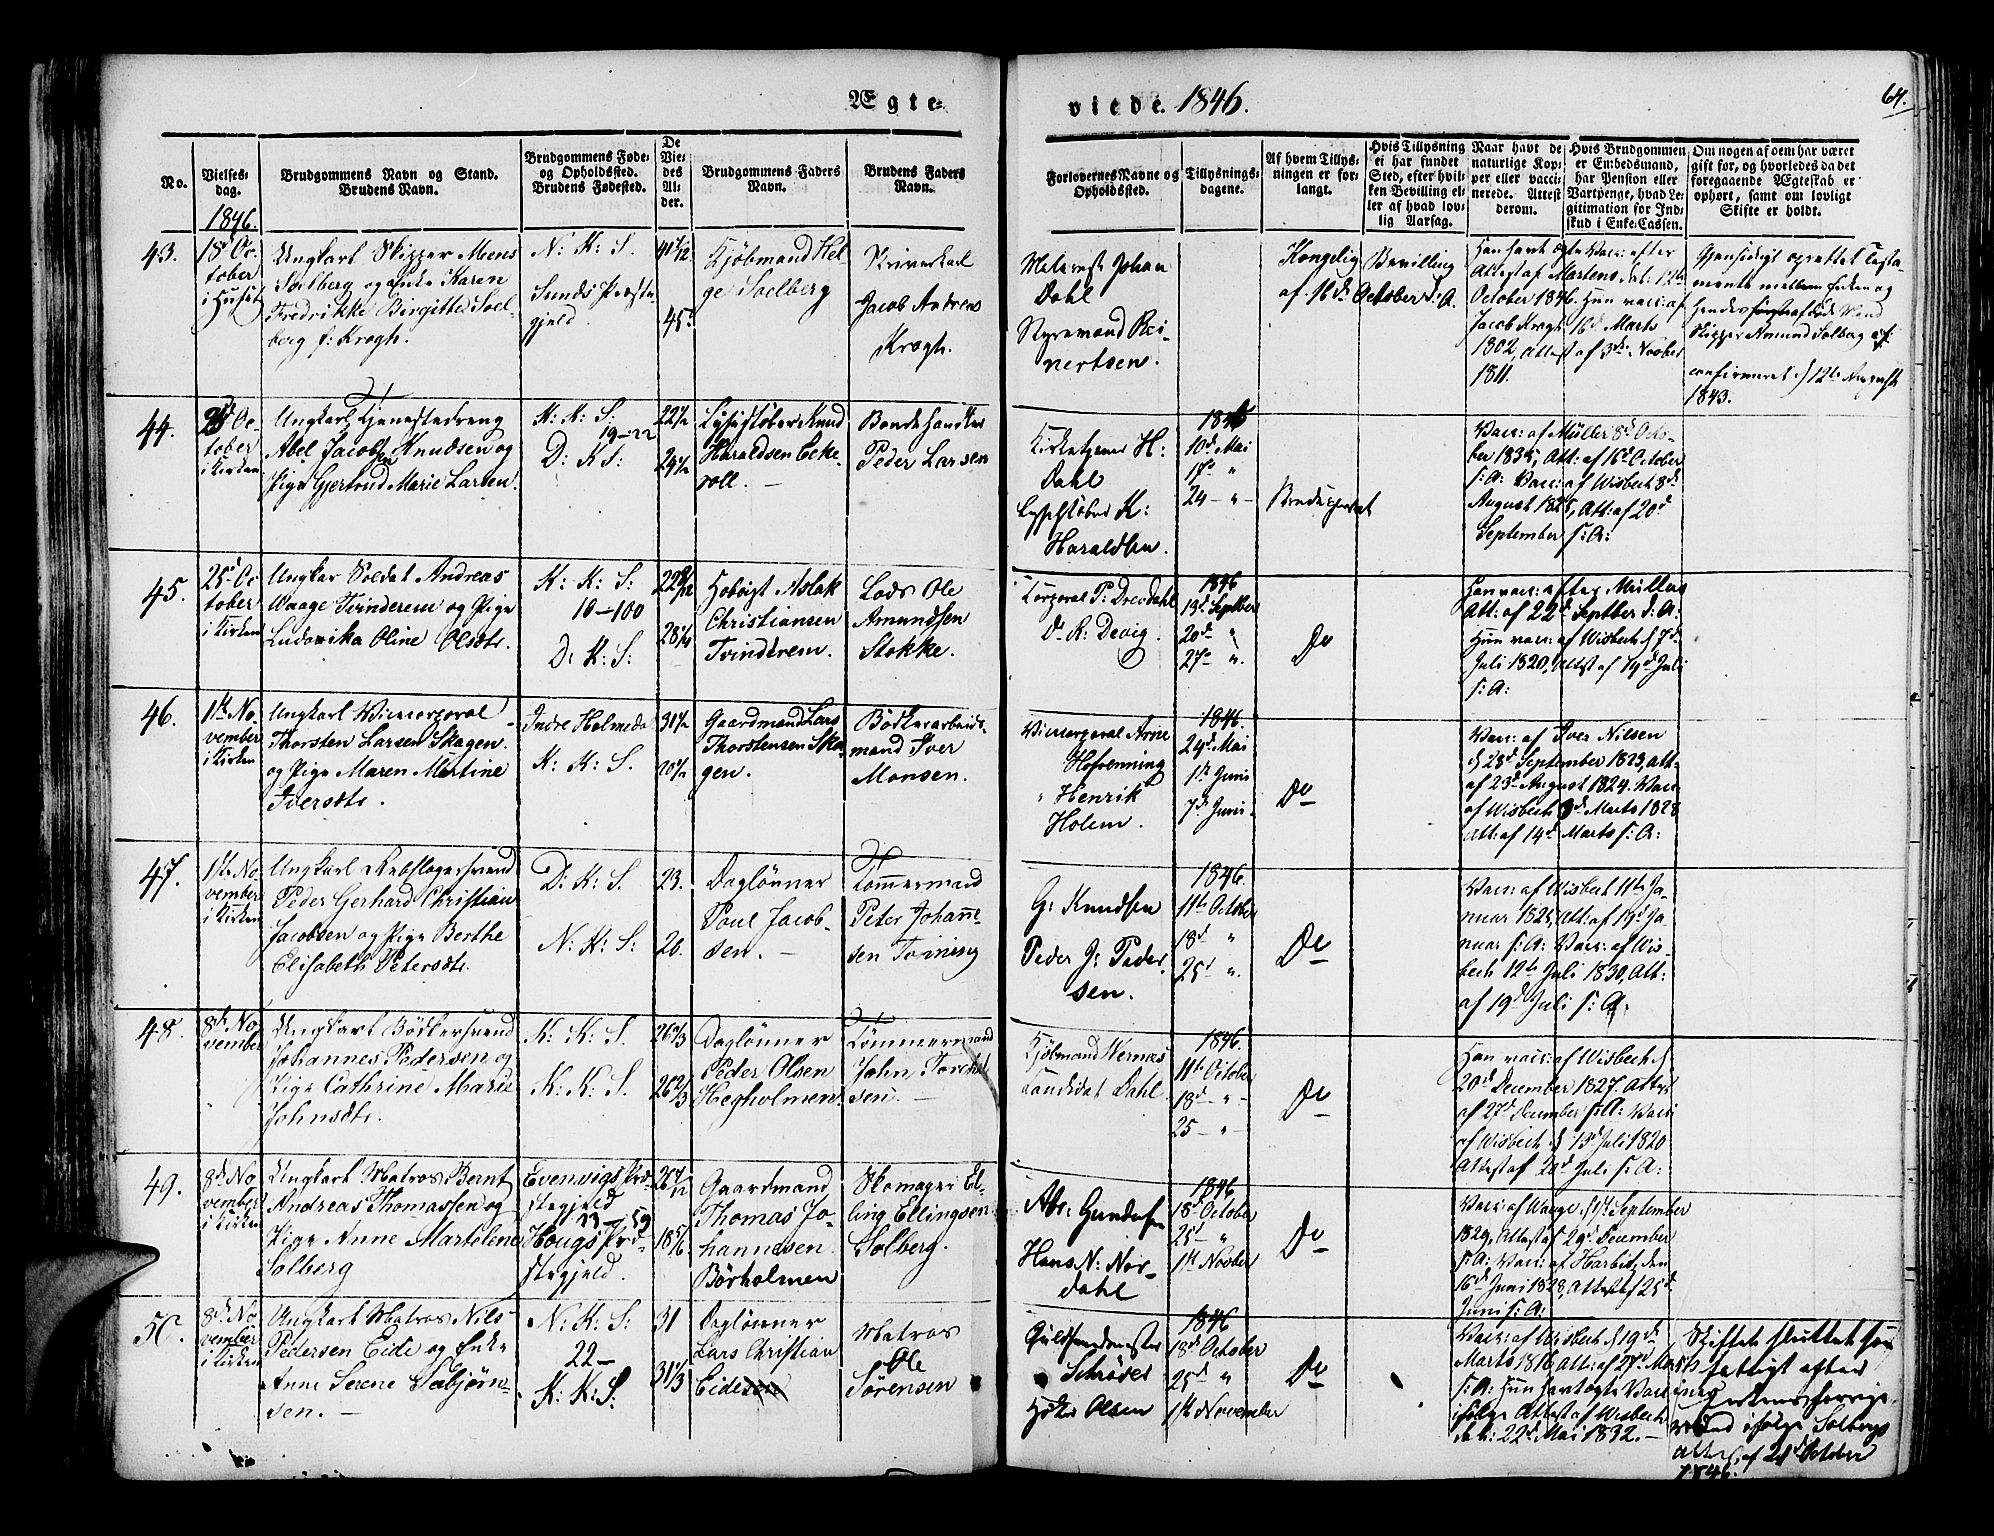 Ægte
viede. 1846.
64.
No.
Vielses-
dag.
Brudgommens Navn og Stand.
Brudens Navn.
Brudgommens Føde-
og Opholdssted.
Brudens Fødested.
De
Vie-
des
Al-
der.
Brudgommens Faders
Navn.
Brudens Faders
Navn.
Forlovernes Navne og
Opholdssted.
Tillysnings-
dagene.
Af hvem Tillys-
ningen er for-
langt.
Hvis Tillysning
ei har fundet
Sted, efter hvil-
ken Bevilling el-
ler af hvad lov-
lig Aarsag.
Naar havt de
naturlige Kop-
per eller vacci-
nerede. Attest
derom.
Hvis Brudgommen
er Embedsmand,
har Pension eller
Vartpenge, hvad Le-
gitimation for Ind-
skud i Enke-Cassen.
Om nogen af dem har været
gift før, og hvorledes da det
foregaaende Ægteskab er
ophørt, samt om lovligt
Skifte er holdt.
1846.
43.
18d Oc-
tober
i Huset
Ungkarl Skipper Mons
Soelberg og Enke Karen
Fredrikke Birgitte Soel-
berg f: Krogh.
N: K: S.
Sunds Præste
gjeld.
45.
Kjøbmand Hel-
ge Soelberg
Jacob Andreas
Krogh.
Johan
Dahl
Styrmand Rei-
nertsen.
Kongelig Bevilling
af 16d October d: A.
Han havt ægte Vac: efter
Attest af Martens dat: 12te
October 1846. Hun vacc: af
Jacob Krogh 16d Marts
1802, Attest af 3die Novber
1811.
Gjensidigt oprettet Testa-
mente mellem Enken og
Skipper Amund Solberg
confirmeret d 12te August
1843.
44.
tober
i Kirken
Ungkarl Tjenestedreng
Abel Jacobsen Knudsen og
Pige Gjertrud Marie Larsen.
K: K: S:
19-22
D: K S:
22 1/2
24 1/2
Knud
Haraldsen Ecke-
roll. —
Bonde
Peder Larsen
H:
Dahl
K:
Haraldsen.
1846
10d Mai
17de "
24 - "
Brudeparret
Vacc: af Müller 8d Octo-
ber 1835, Att: af 16d October
s: A: Vacc: af Wisbech 8d
August 1825, Att: af 20d
September s: A:
45.
25d Oc
tober
i Kirken
Ungkar Soldat Andreas
Waage Tvinderem og Pige
Ludovika Oline Olsdtr.
K: K: S:
10-100
D: K: S:
28 1/4
Hoboist Aslak
Christiansen
Tvinderem.
Lods Ole
Amundsen
Stokke.
Corporal P: Drevdahl
Do R: Devig.
1846
13d Septber
20d "
27de "
Do
Han vacc: efter Müllers
Att: af 22d Septber d: A:
Hun vacc: af Wisbech d 7d
Juli 1820, Attest af 19d Juli
s: A:
46.
1ste No-
vember
i Kirken
Ungkarl Vicecorporal
Thorsten Larsen Skagen.
og Pige Maren Martine
Iversdtr.
Indre Holmedal
K: K: S.
31 1/2
20 1/2
Gaardmand Lars
Thorstensen Ska-
gen.
Bödkerarbeids-
mand Iver
Monsen.
Vicecorporal Arne
Hofrenning
" Henrik
Holem.
1846.
24d Mai
1ste Juni
7de Juni
Do
Vacc: af Iver Nilsen
d 28d September 1823, Att:
af 23d August 1824. Vacc:
af Wisbech 3d Marts 1828
Att: af 14d Marts s: A:
47.
1ste No-
vember
i Kirken
Ungkarl Rebslagersvend
Peder Gerhard Christian
Jacobsen og Pige Berthe
Elisabeth Petersdtr.
D: K: S.
N: K: S:
23.
20.
Daglønner
Poul Jacob-
sen. —
Tömmermand
Peter Johanne-
sen Tvining
G: Knudsen
Peder G: Peder-
sen.
1846.
11te October
18d "
25d "
Do
Vacc: af Wisbech 11te Ja-
nuar 1825, Att: af 19d Ja-
nuar s: A: Vacc: af Wis-
bech 12te Juli 1830, Att:
af 19d Juli s: A:
48.
8de No-
vember
Ungkarl Bödkersvend
Johannes Pedersen og
Pige Cathrine Marie
Johnsdtr.
K: K: S.
K: K: S.
26 2/3
26 2/3
Daglønner
Peder Olsen
Hegholmen.
Tömmermand
John Torkel
sen. —
Kjøbmand Wernæs
Candidat Dahl.
1846.
11te October
18d "
25 - " -
Do
Han vacc: af Wisbech d
20d December 1827 Attest
af 27d December s: A: Vacc:
af Wisbech d 13d Juli 1820
Attest af 20d Juli s: A:
49.
8de No-
vember
i Kirken
Ungkarl Matros Bernt
Andreas Thomassen og
Pige Anne Martelene
Solberg
Evenvigs Præ-
stegjeld
23-59
Hougs Præ-
stegjeld.
18 5/6
Gaardmand
Thomas Jo-
hannesen
Börholmen
Skomager El-
ling Ellingsen
Solberg.
Abr: Gundersen
Hans N: Nor-
dahl
1846
18d October
25d "
1ste Novber
Do
Vacc: af Waage d 1ste September
1829, Attest af 29d December
s: A: Vacc: af Harbitz den
16d Juni 1828, Attest af 25d
Juni s: A:
50.
8de No-
vember
i Kirken
Ungkarl Matros Nils
Pedersen Eide og Enke
Anne Serene Sæbjörn-
sen. —
N: K: S:
22 —
K: K: S.
31
31 1/3
Daglønner
Lars Christian
Eidesen
Matros
Ole
Sörensen
Schröder
Olsen
1846
18d October
25d "
1ste November
Do
Vacc: af Wisbech d 19d
Marts 1816, Att: af 27d Marts
s: A: Hun havt ægte Vacc:
ifølge Attest af Wisbech
dat: 22d Mai 1832. —
Skiftet sluttet
efter
Enkens forrige
Mand ifølge Solbergs
Attest af 21d October
1846.